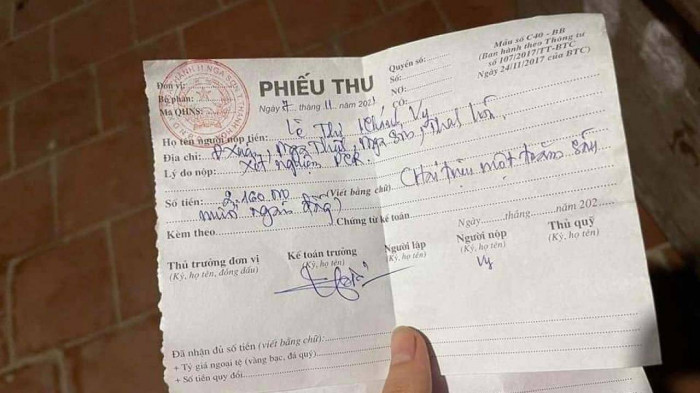 Mẫu số C40 - BB
(Ban hành theo Thông tư
số 107/2017/TT-BTC
Ngày 24/11/2017 của BTC)
Quyển số:
Số:
NỢ:
CÓ:
Đơn vị:
Bộ phận:
Mã QHNS:
PHIẾU THU
Ngày 7 tháng 11 năm 2021
Họ tên người nộp tiền: Lê Thị Khánh Vy
Địa chỉ: Nga Sơn, Thanh Hóa
Lý do nộp: Xét nghiệm PCR.
Số tiền: 2.160.000 (Viết bằng chữ) (Hai triệu một trăm sáu
mươi ngàn đồng)
Kèm theo Chứng từ kế toán
Ngày tháng năm 202
Thủ trưởng đơn vị
(Ký, họ tên, đóng dấu)
Kế toán trưởng
(Ký, họ tên)
Người lập
(Ký, họ tên)
Người nộp
(Ký, họ tên)
Vy
Thủ quỹ
(Ký, họ tên)
Đã nhận đủ số tiền (viết bằng chữ):
+ Tỷ giá ngoại tệ (vàng bạc, đá quý)
+ Số tiền quy đổi